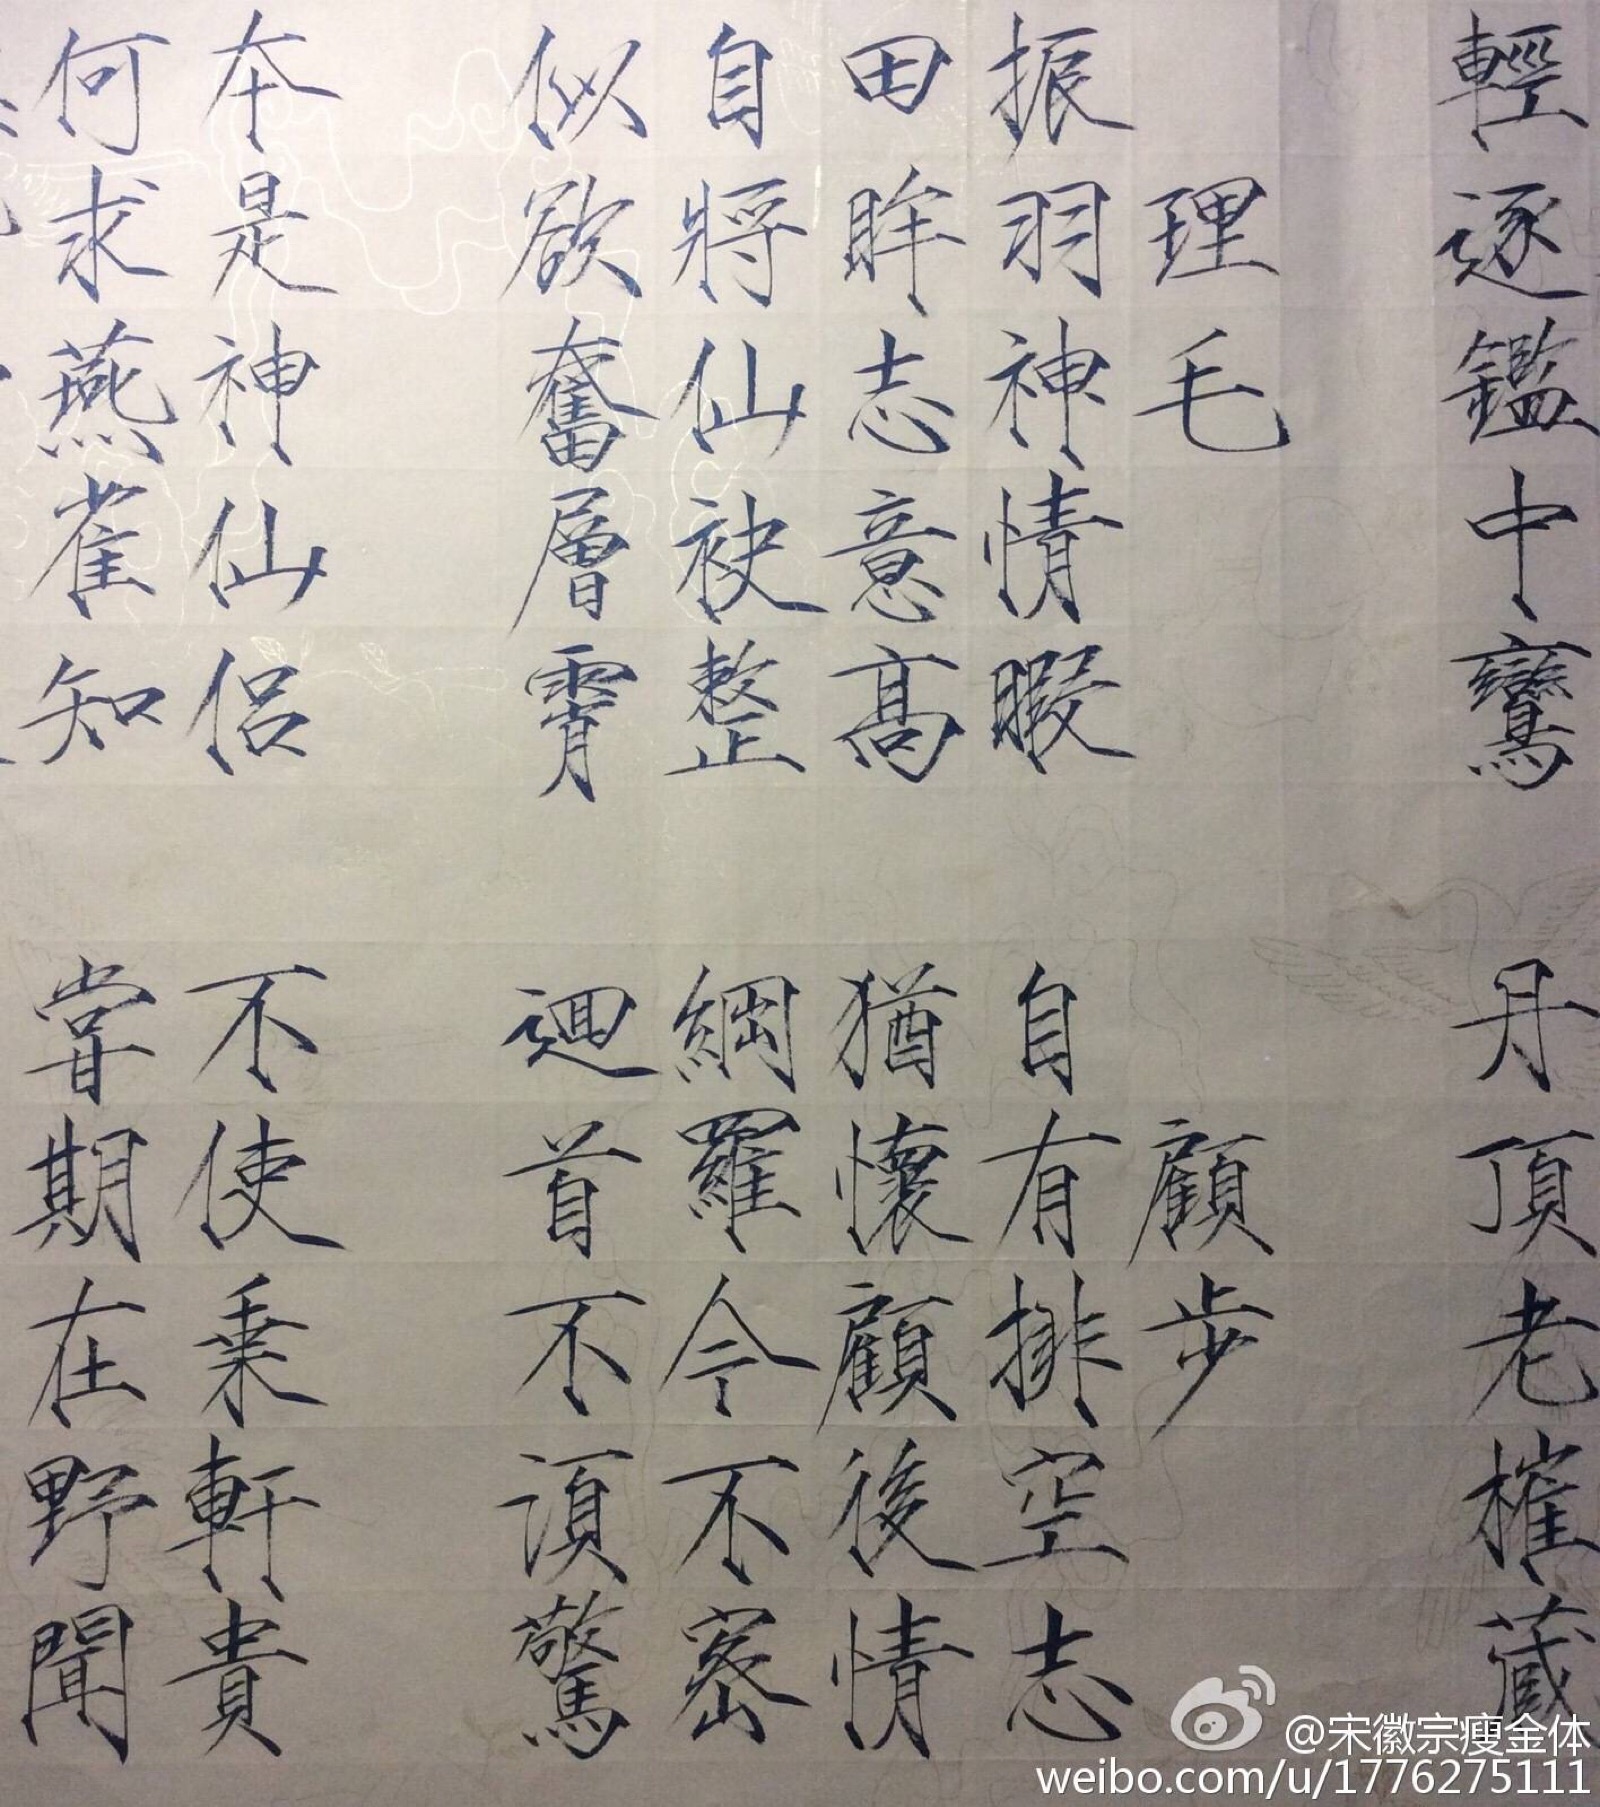 輕逐鑑中鸞 丹頂老摧藏
理毛 顧步
振羽神情暇 自有排空志
田眸志意高 猶懷顧後情
自將仙袂整 網羅今不密
似欲奮層霄 迴首不須驚
本是神仙侶 不使乘軒貴
何求燕雀知 嘗期在野聞
@宋徽宗瘦金体
weibo.com/u/1776275111